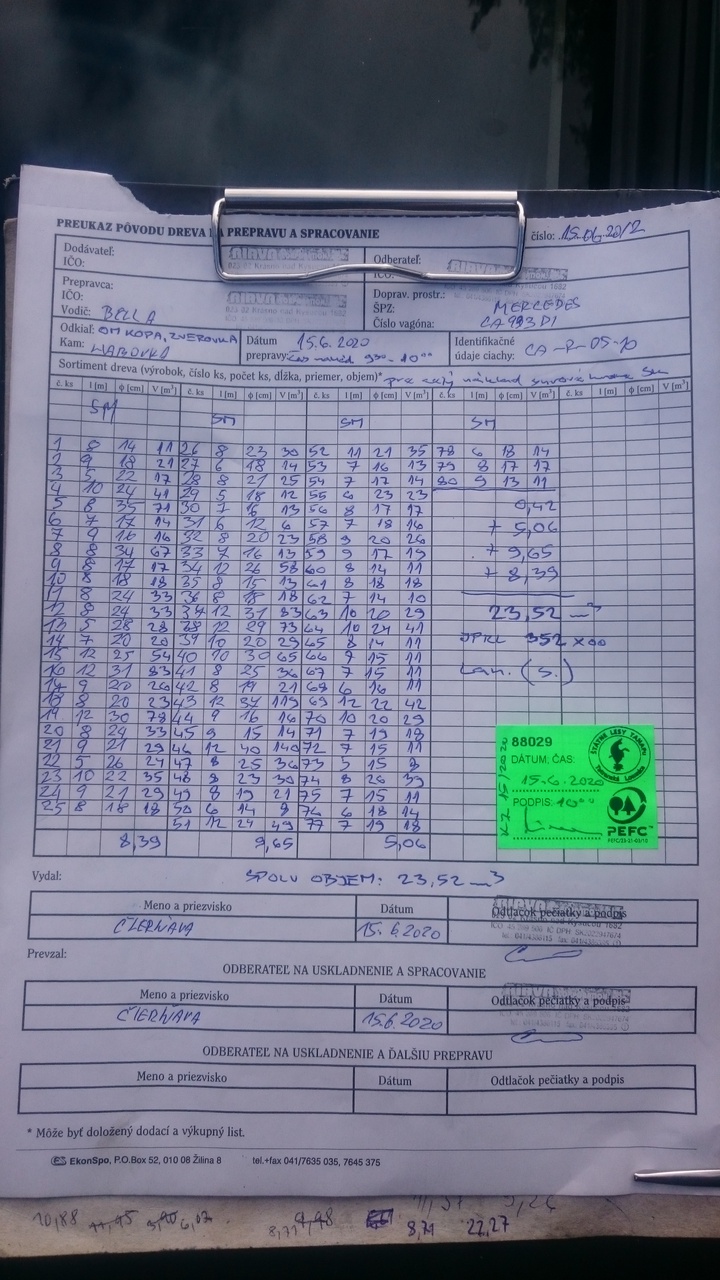 PREUKAZ PÔVODU DREVA NA PREPRAVU A SPRACOVANIE
číslo: 15.06.20/2
Dodávateľ:
IČO:
Odberateľ:
IČO:
Prepravca:
IČO:
Vodič: BELLA
Doprav. prostr.: MERCEDES
ŠPZ: CA 983 DI
Číslo vagóna:
Odkiaľ: OM KOPA, ZVEROVKA
Kam: HABOVKA
Dátum prepravy: 15.6.2020
Identifikačné údaje ciachy: CA-R-05-10
Sortiment dreva (výrobok, číslo ks, počet ks, dĺžka, priemer, objem)*
č. ks l [m] ϕ [cm] V [m³] č. ks l [m] ϕ [cm] V [m³] č. ks l [m] ϕ [cm] V [m³] č. ks l [m] ϕ [cm] V [m³] č. ks l [m] ϕ [cm] V [m³]
SM SM SM SM
1 8 14 11 26 8 23 30 52 11 21 35 78 6 18 14
2 9 18 21 27 6 18 14 53 7 16 13 79 8 17 17
3 5 22 17 28 8 21 25 54 7 17 14 80 9 13 11
4 10 24 41 29 5 18 12 55 6 23 23
5 8 35 71 30 7 16 13 56 8 17 17 0,42
6 7 17 14 31 6 12 6 57 7 18 16 + 5,06
7 9 16 16 32 8 20 23 58 9 20 26
8 8 34 67 33 7 16 13 59 9 17 19 + 9,65
9 8 17 17 34 12 26 58 60 8 14 11 + 8,39
10 8 18 18 35 8 15 13 61 8 18 18
11 8 24 33 36 8 18 18 62 7 14 10
12 8 24 33 37 12 31 83 63 10 20 29 23,52 m³
13 5 28 28 38 12 29 73 64 10 24 41
14 7 20 20 39 10 20 29 65 8 14 11 JPRL 352 x00
15 12 25 54 40 10 30 65 66 7 15 11
16 12 31 83 41 8 25 36 67 7 15 11 Lan. (S.)
17 9 20 26 42 8 19 21 68 6 16 11
18 8 20 23 43 12 37 119 69 12 22 42
19 12 30 78 44 9 16 16 70 10 20 29
20 8 24 33 45 9 15 14 71 7 19 18
21 9 21 29 46 12 40 140 72 7 15 11
22 5 26 24 47 8 25 36 73 5 15 8
23 10 22 35 48 8 23 30 74 8 26 39
24 9 21 29 49 8 19 21 75 7 15 11
25 8 18 18 50 6 14 8 76 6 18 14
51 12 24 49 77 7 19 18
8,39 9,65 5,06
88029
DÁTUM, ČAS:
15.6.2020
PODPIS: 10⁰⁰
ŠTÁTNE LESY TANAPU
Tatranská Lomnica
PEFC™
Vydal:
SPOLU OBJEM: 23,52 m³
Meno a priezvisko Dátum Odtlačok pečiatky a podpis
ČIERŇAVA 15.6.2020
Prevzal:
ODBERATEĽ NA USKLADNENIE A SPRACOVANIE
Meno a priezvisko Dátum Odtlačok pečiatky a podpis
ČIERŇAVA 15.6.2020
ODBERATEĽ NA USKLADNENIE A ĎALŠIU PREPRAVU
Meno a priezvisko Dátum Odtlačok pečiatky a podpis
* Môže byť doložený dodací a výkupný list.
EkonSpo, P.O.Box 52, 010 08 Žilina 8 tel.+fax 041/7635 035, 7645 375
10,88 8,71 22,27